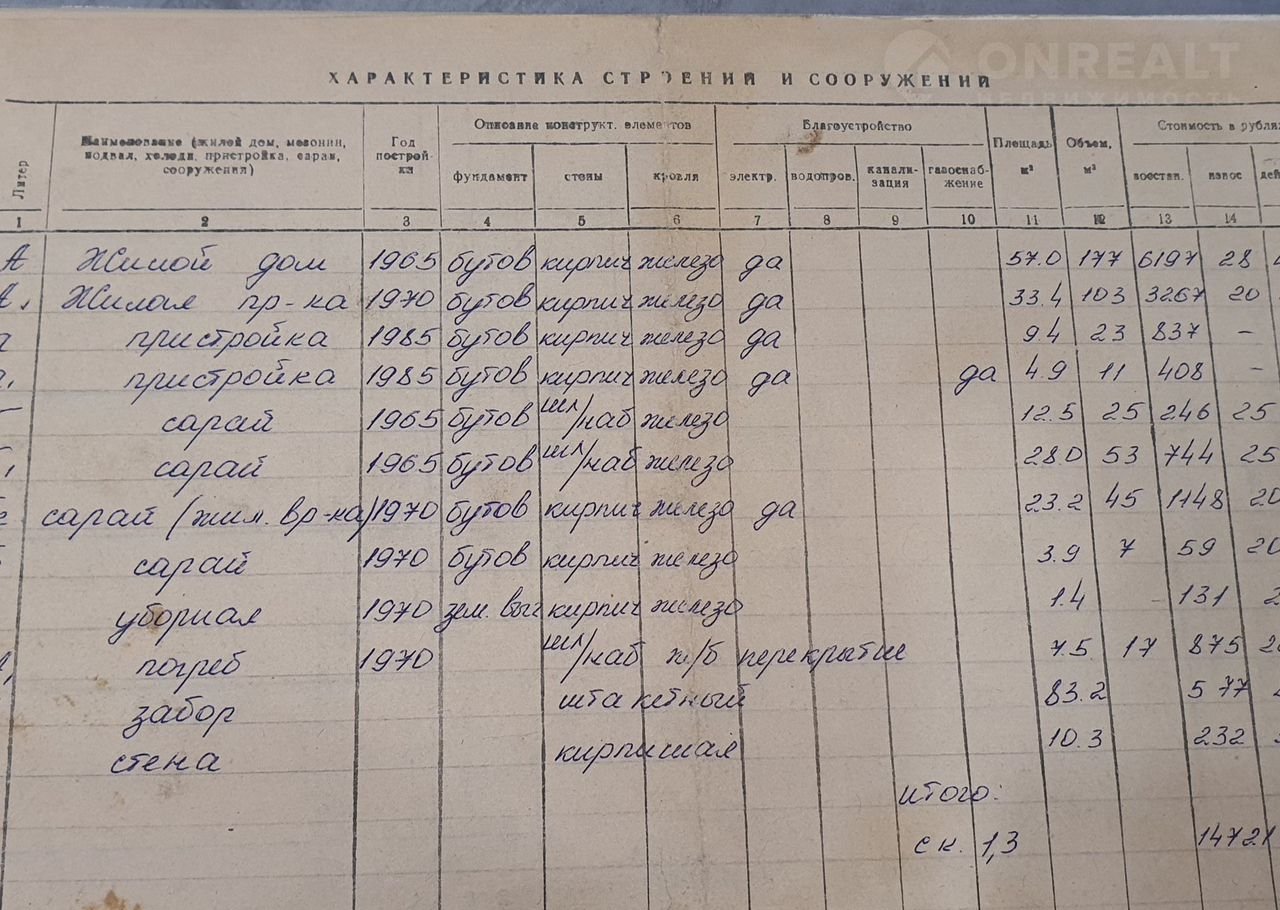 ONREALT
НЕДВИЖИМОСТЬ
ХАРАКТЕРИСТИКА СТРОЕНИЙ И СООРУЖЕНИЙ
Литер
Наименование (жилой дом, мезонин, подвал, холодн. пристройка, сарай, сооружения)
Год постройки
Описание конструкт. элементов
Благоустройство
Площадь м²
Объем, м³
Стоимость в рублях
фундамент стены кровля электр. водопров. канализация газоснабжение восстан. износ дей
1 2 3 4 5 6 7 8 9 10 11 12 13 14
А Жилой дом 1965 бутов кирпич железо да 57.0 177 6197 28
А, Жилая пр-ка 1970 бутов кирпич железо да 33.4 103 3267 20
а пристройка 1985 бутов кирпич железо да 9.4 23 837 –
а, пристройка 1985 бутов кирпич железо да да 4.9 11 408 –
сарай 1965 бутов шл/наб железо 12.5 25 246 25
сарай 1965 бутов шл/наб железо 28.0 53 744 25
сарай (жил. вр-ка) 1970 бутов кирпич железо да 23.2 45 1148 20
сарай 1970 бутов кирпич железо 3.9 7 59 20
уборная 1970 зем. выг кирпич железо 1.4 – 131
погреб 1970 шл/наб ж/б перекрытие 7.5 17 875
забор штакетный 83.2 577
стена кирпичная 10.3 232
итого:
с к. 1,3 14721